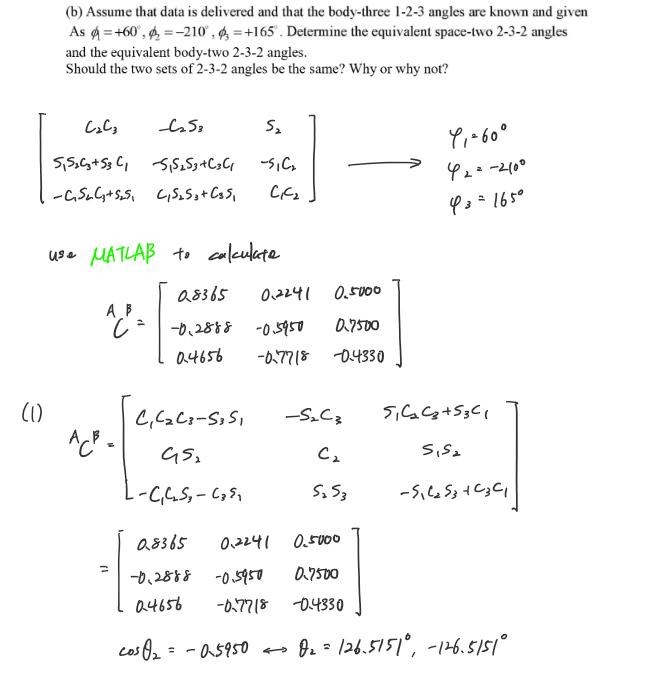 (b) Assume that data is delivered and that the body-three 1-2-3 angles are known and given
As ϕ₁ = +60°, ϕ₂ = −210°, ϕ₃ = +165°. Determine the equivalent space-two 2-3-2 angles
and the equivalent body-two 2-3-2 angles.
Should the two sets of 2-3-2 angles be the same? Why or why not?
C₂C₃ -C₂S₃ S₂ φ₁ = 60°
S₁S₂C₃+S₃C₁ -S₁S₂S₃+C₃C₁ -S₁C₂ → φ₂ = -210°
-C₁S₂C₃+S₃S₁ C₁S₂S₃+C₃S₁ C₁C₂ φ₃ = 165°
use MATLAB to calculate
0.8365 0.2241 0.5000
ᴬCᴮ = -0.2888 -0.5950 0.7500
0.4656 -0.7718 -0.4330
(1)
C₁C₂C₃-S₃S₁ -S₂C₃ S₁C₂C₃+S₃C₁
ᴬCᴮ = C₁S₂ C₂ S₁S₂
-C₁C₂S₃-C₃S₁ S₂S₃ -S₁C₂S₃+C₃C₁
0.8365 0.2241 0.5000
= -0.2888 -0.5950 0.7500
0.4656 -0.7718 -0.4330
cosθ₂ = -0.5950 ↔ θ₂ = 126.5151°, -126.5151°